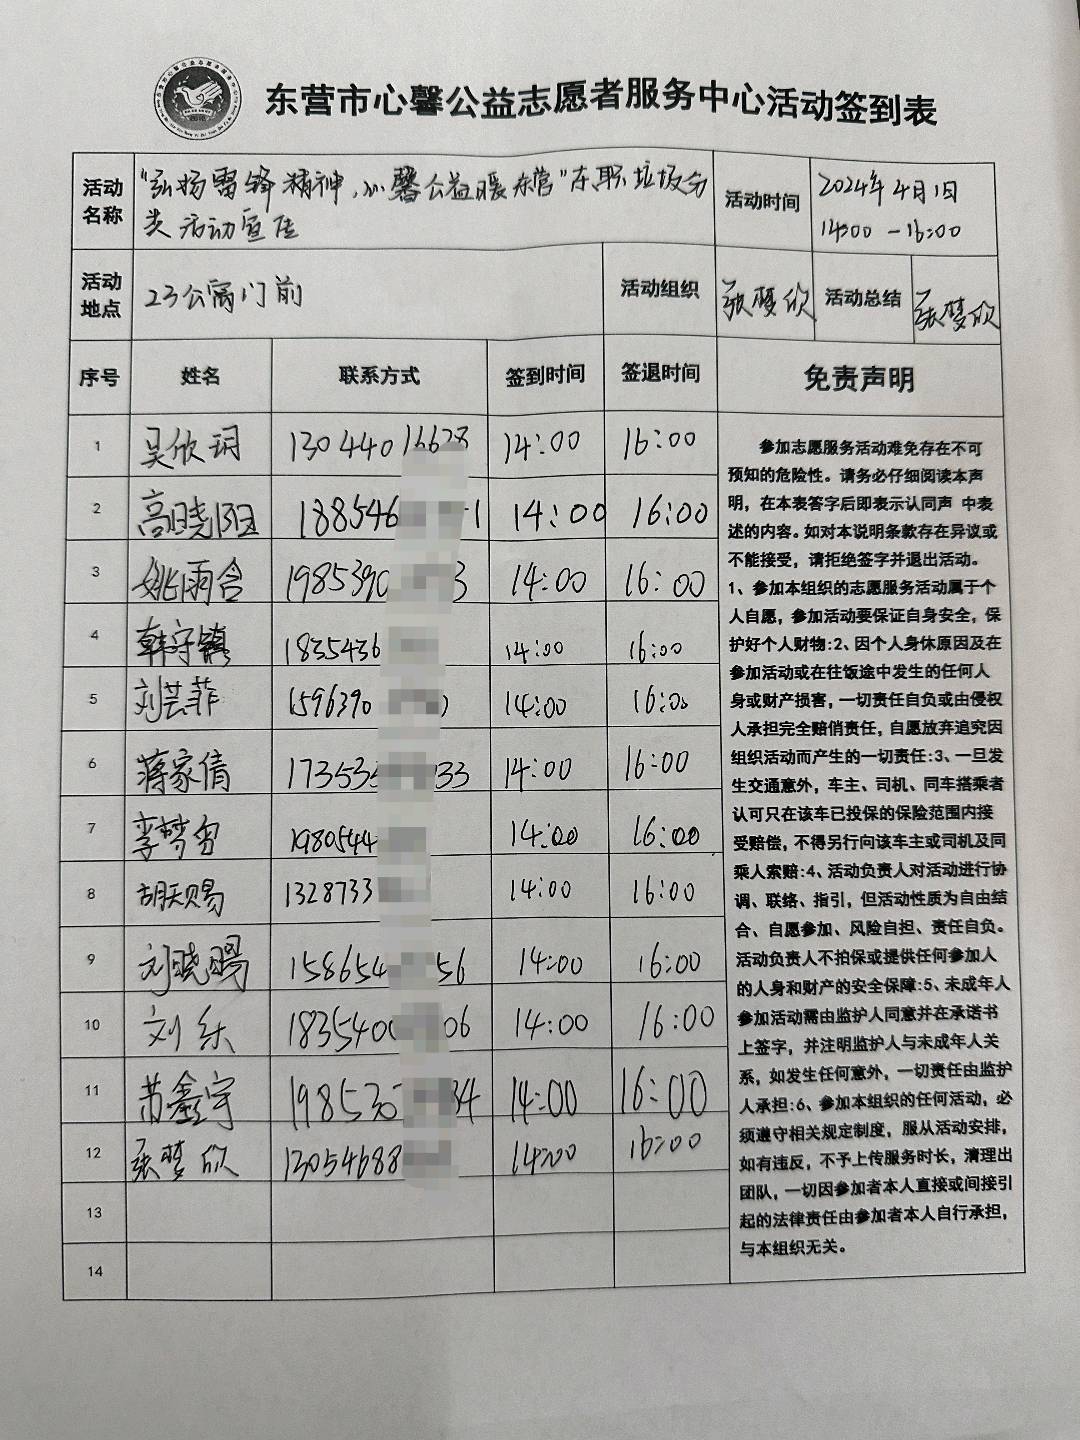 东营市心馨公益志愿者服务中心活动签到表
活动名称 "弘扬雷锋精神,心馨公益暖东营"东职垃圾分类活动宣传 活动时间 2024年4月1日 14:00-16:00
活动地点 23公寓门前 活动组织 张梦欣 活动总结 张梦欣
序号 姓名 联系方式 签到时间 签退时间 免责声明
1 吴欣玥 130440 16628 14:00 16:00
2 高晓阳 188546 1 14:00 16:00
3 姚雨含 1985390 3 14:00 16:00
4 韩守镇 1835436 14:00 16:00
5 刘芸菲 1596390 14:00 16:00
6 蒋家倩 173535 33 14:00 16:00
7 李梦 1980544 14:00 16:00
8 胡天赐 1328733 14:00 16:00
9 刘晓 158654 56 14:00 16:00
10 刘乐 1835400 06 14:00 16:00
11 苏鑫宇 198530 34 14:00 16:00
12 张梦欣 13054688 14:00 16:00
13
14
参加志愿服务活动难免存在不可
预知的危险性。请务必仔细阅读本声
明,在本表答字后即表示认同声 中表
述的内容。如对本说明条款存在异议或
不能接受,请拒绝签字并退出活动。
1、参加本组织的志愿服务活动属于个
人自愿,参加活动要保证自身安全,保
护好个人财物:2、因个人身休原因及在
参加活动或在往饭途中发生的任何人
身或财产损害,一切责任自负或由侵权
人承担完全赔俏责任,自愿放弃追究因
组织活动而产生的一切责任:3、一旦发
生交通意外,车主、司机、同车搭乘者
认可只在该车已投保的保险范围内接
受赔偿,不得另行向该车主或司机及同
乘人索赔:4、活动负责人对活动进行协
调、联络、指引,但活动性质为自由结
合、自愿参加、风险自担、责任自负。
活动负责人不拍保或提供任何参加人
的人身和财产的安全保障:5、未成年人
参加活动需由监护人同意并在承诺书
上签字,并注明监护人与未成年人关
系,如发生任何意外,一切责任由监护
人承担:6、参加本组织的任何活动,必
须遵守相关规定制度,服从活动安排,
如有违反,不予上传服务时长,清理出
团队,一切因参加者本人直接或间接引
起的法律责任由参加者本人自行承担,
与本组织无关。